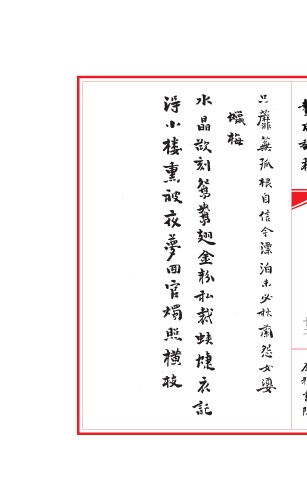 只蘼蕪孤根自信今漂泊未必秋蘭怨女嬃
蠟梅
水晶欲刻鴛鴦翅金粉私裁蛺蝶衣記
得小樓熏被夜夢回官燭照橫枝